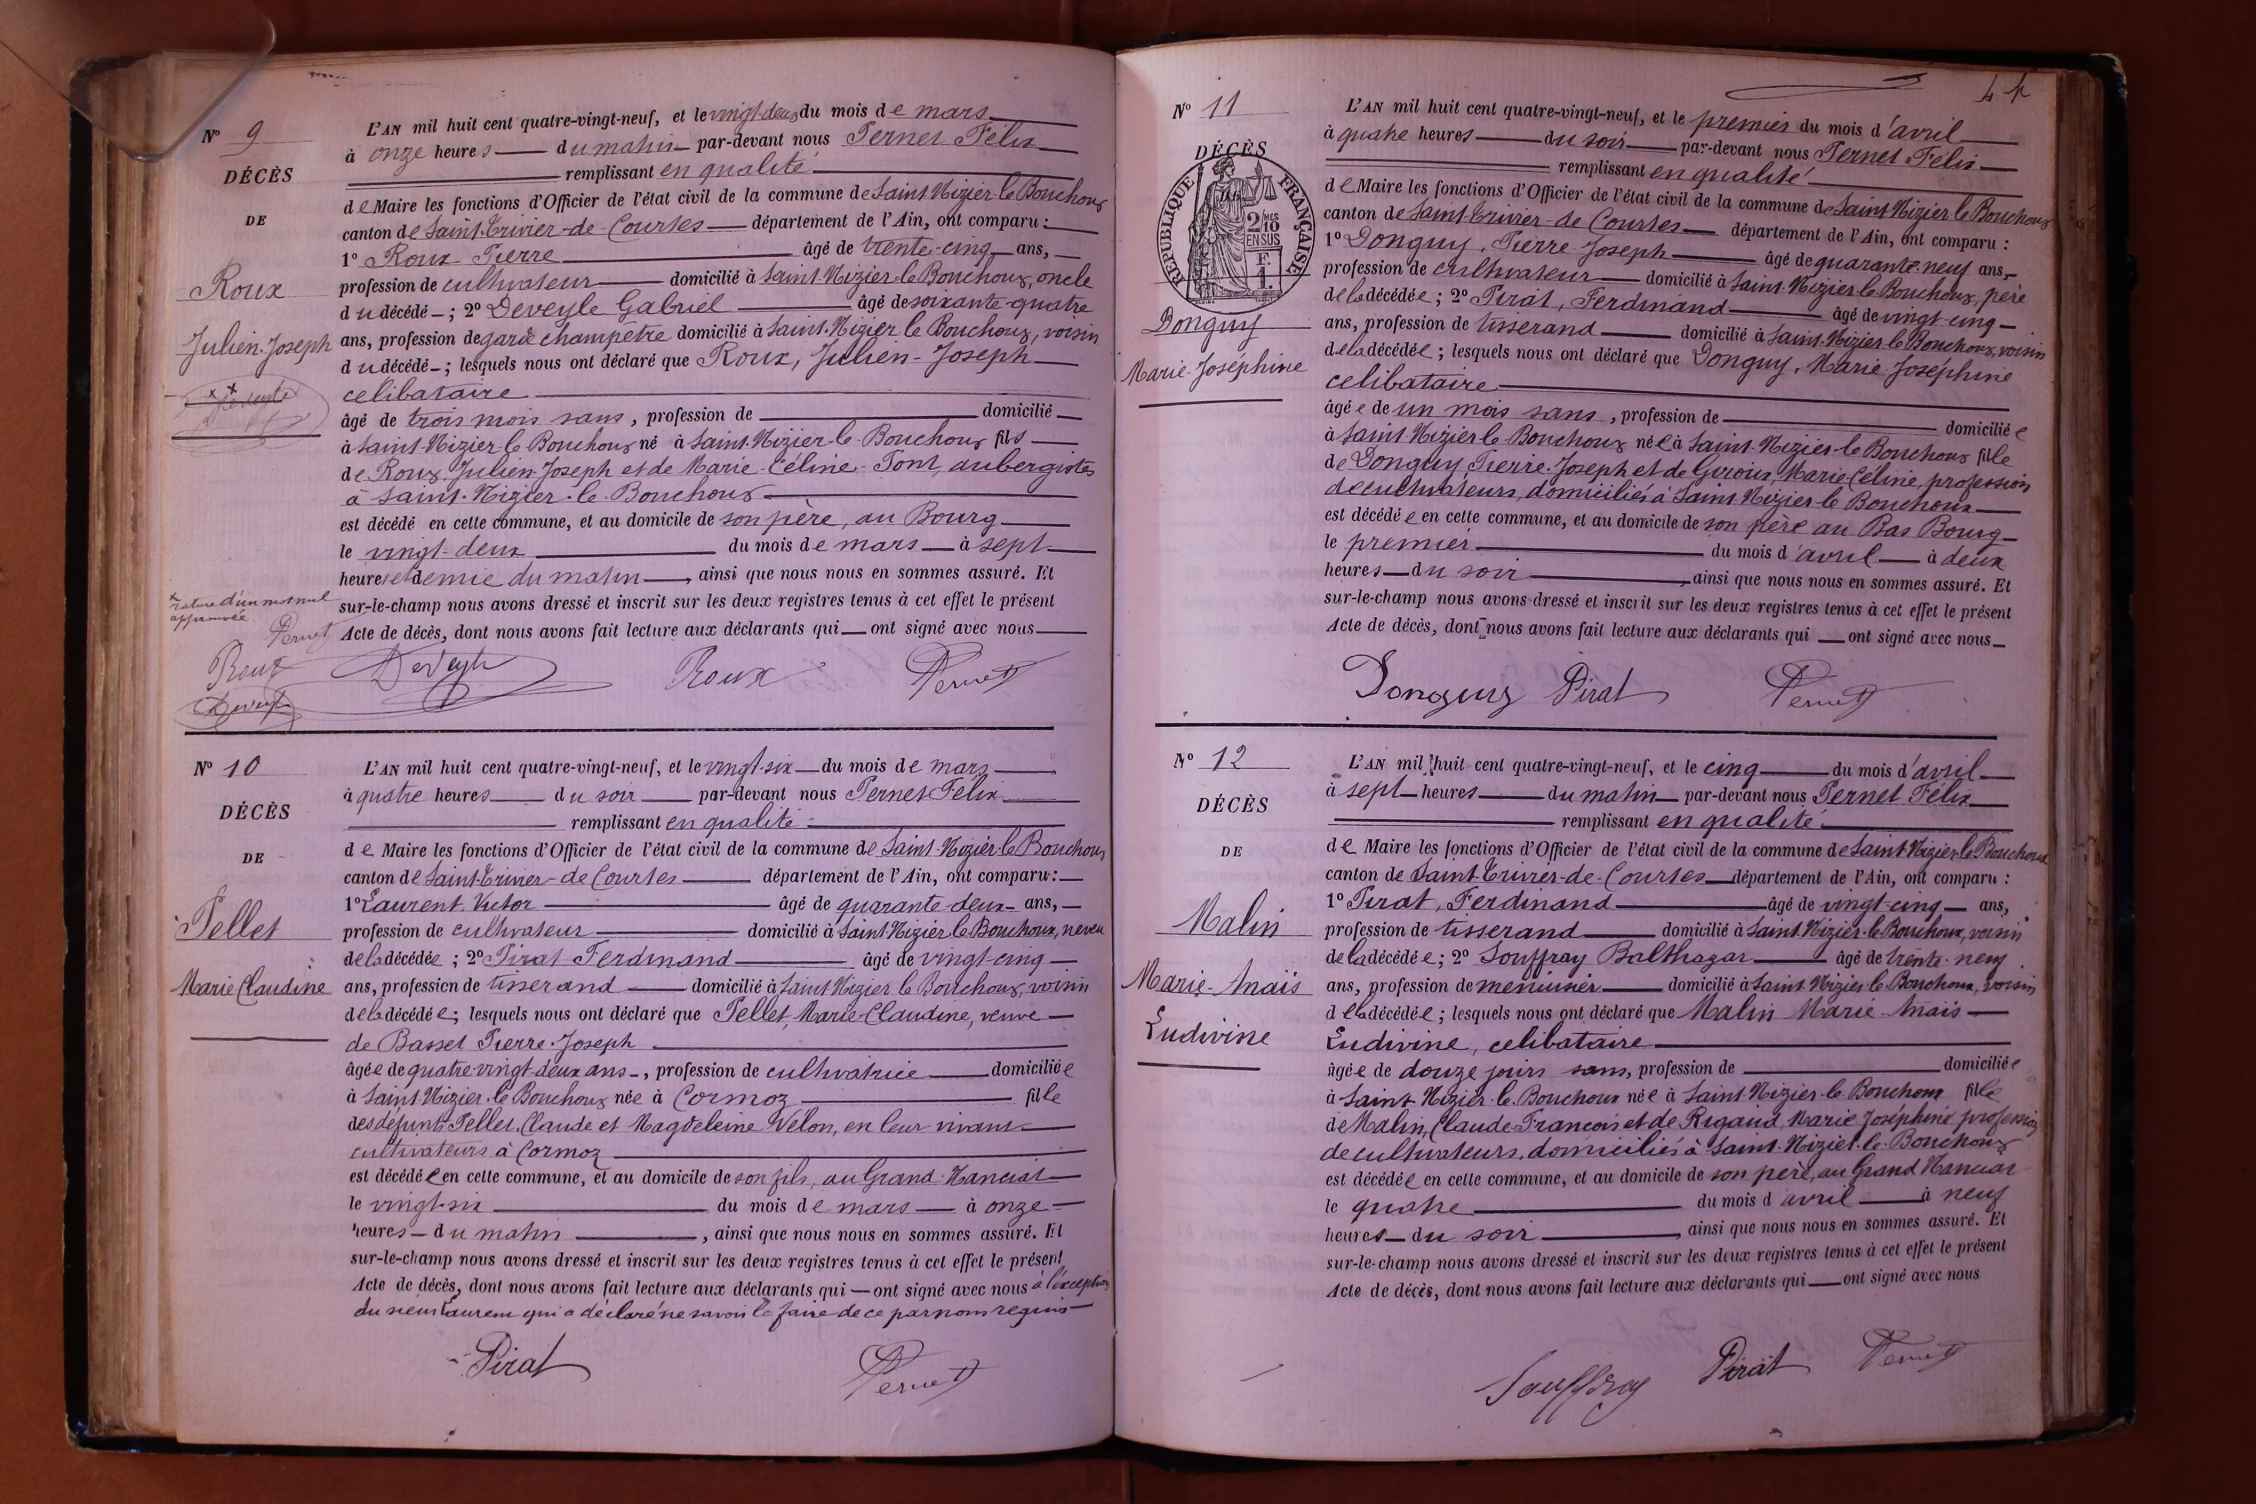 N° 9
DÉCÈS
DE
Roux
Julien-Joseph
L'AN mil huit cent quatre-vingt-neuf, et le vingt-deux du mois de mars
à onze heures du matin par-devant nous Pernet Félix
remplissant en qualité
de Maire les fonctions d'Officier de l'état civil de la commune de Saint-Nizier-le-Bouchoux
canton de Saint-Trivier-de-Courtes département de l'Ain, ont comparu :
1° Roux Pierre âgé de trente-cinq ans,
profession de cultivateur domicilié à Saint-Nizier-le-Bouchoux, oncle
du décédé ; 2° Deveyle Gabriel âgé de soixante-quatre
ans, profession de garde champêtre domicilié à Saint-Nizier le Bouchoux, voisin
du décédé ; lesquels nous ont déclaré que Roux, Julien-Joseph
celibataire
âgé de trois mois sans, profession de domicilié
à Saint-Nizier-le-Bouchoux né à Saint-Nizier-le-Bouchoux fils
de Roux Julien-Joseph et de Marie-Céline Pont, aubergistes
à Saint-Nizier-le-Bouchoux
est décédé en cette commune, et au domicile de son père, au Bourg
le vingt-deux du mois de mars à sept
heures et demie du matin, ainsi que nous nous en sommes assuré. Et
sur-le-champ nous avons dressé et inscrit sur les deux registres tenus à cet effet le présent
Acte de décès, dont nous avons fait lecture aux déclarants qui ont signé avec nous
rature d'un mot nul
approuvée
Pernet
Roux
Deveyle
Deveyle Roux Pernet
N° 10
DÉCÈS
DE
Pellet
Marie Claudine
L'AN mil huit cent quatre-vingt-neuf, et le vingt-six du mois de mars
à quatre heures du soir par-devant nous Pernet Félix
remplissant en qualité
de Maire les fonctions d'Officier de l'état civil de la commune de Saint-Nizier-le-Bouchoux
canton de Saint-Trivier-de-Courtes département de l'Ain, ont comparu :
1° Laurent Victor âgé de quarante-deux ans,
profession de cultivateur domicilié à Saint Nizier-le-Bouchoux, neveu
de la décédée ; 2° Pirat Ferdinand âgé de vingt-cinq
ans, profession de tisserand domicilié à Saint Nizier le Bouchoux, voisin
de la décédée ; lesquels nous ont déclaré que Pellet, Marie-Claudine, veuve
de Basset Pierre-Joseph
âgée de quatre-vingt-deux ans, profession de cultivatrice domiciliée
à Saint-Nizier-le-Bouchoux née à Cormoz fille
des défunts Pellet, Claude et Magdeleine Velon, en leur vivant
cultivateurs à Cormoz
est décédée en cette commune, et au domicile de son fils, au Grand-Nanciat
le vingt-six du mois de mars à onze
heures du matin, ainsi que nous nous en sommes assuré. Et
sur-le-champ nous avons dressé et inscrit sur les deux registres tenus à cet effet le présent
Acte de décès, dont nous avons fait lecture aux déclarants qui ont signé avec nous à l'exception
du sieur Laurent qui a déclaré ne savoir le faire de ce par nous requis
Pirat Pernet
N° 11
DÉCÈS
RÉPUBLIQUE FRANÇAISE
2/10
EN SUS
F.
1.
Donguy
Marie-Joséphine
L'AN mil huit cent quatre-vingt-neuf, et le premier du mois d'avril
à quatre heures du soir par-devant nous Pernet Félix
remplissant en qualité
de Maire les fonctions d'Officier de l'état civil de la commune de Saint-Nizier-le-Bouchoux
canton de Saint-Trivier-de-Courtes département de l'Ain, ont comparu :
1° Donguy, Pierre Joseph âgé de quarante-neuf ans,
profession de cultivateur domicilié à Saint-Nizier-le-Bouchoux, père
de la décédée ; 2° Pirat, Ferdinand âgé de vingt-cinq
ans, profession de tisserand domicilié à Saint-Nizier-le-Bouchoux, voisin
de la décédée ; lesquels nous ont déclaré que Donguy, Marie Joséphine
celibataire
âgée de un mois sans, profession de domiciliée
à Saint Nizier-le-Bouchoux née à Saint-Nizier-le-Bouchoux fille
de Donguy, Pierre-Joseph et de Marie Céline, profession
de cultivateurs, domiciliés à Saint Nizier-le-Bouchoux
est décédée en cette commune, et au domicile de son père au Bas Bourg
le premier du mois d'avril à deux
heures du soir, ainsi que nous nous en sommes assuré. Et
sur-le-champ nous avons dressé et inscrit sur les deux registres tenus à cet effet le présent
Acte de décès, dont nous avons fait lecture aux déclarants qui ont signé avec nous
Donguy Pirat Pernet
N° 12
DÉCÈS
DE
Malin
Marie-Anaïs
Ludivine
L'AN mil huit cent quatre-vingt-neuf, et le cinq du mois d'avril
à sept heures du matin par-devant nous Pernet Félix
remplissant en qualité
de Maire les fonctions d'Officier de l'état civil de la commune de Saint-Nizier-le-Bouchoux
canton de Saint-Trivier-de-Courtes département de l'Ain, ont comparu :
1° Pirat, Ferdinand âgé de vingt-cinq ans,
profession de tisserand domicilié à Saint-Nizier-le-Bouchoux, voisin
de la décédée ; 2° Souffray Balthazar âgé de trente-neuf
ans, profession de menuisier domicilié à Saint-Nizier-le-Bouchoux, voisin
de la décédée ; lesquels nous ont déclaré que Malin Marie-Anaïs
Ludivine, celibataire
âgée de douze jours sans, profession de domiciliée
à Saint-Nizier-le-Bouchoux née à Saint-Nizier-le-Bouchoux fille
de Malin, Claude-François et de Rigaud, Marie Joséphine profession
de cultivateurs, domiciliés à Saint-Nizier-le-Bouchoux
est décédée en cette commune, et au domicile de son père, au Grand Nanciat
le quatre du mois d'avril à neuf
heures du soir, ainsi que nous nous en sommes assuré. Et
sur-le-champ nous avons dressé et inscrit sur les deux registres tenus à cet effet le présent
Acte de décès, dont nous avons fait lecture aux déclarants qui ont signé avec nous
Souffray Pirat Pernet